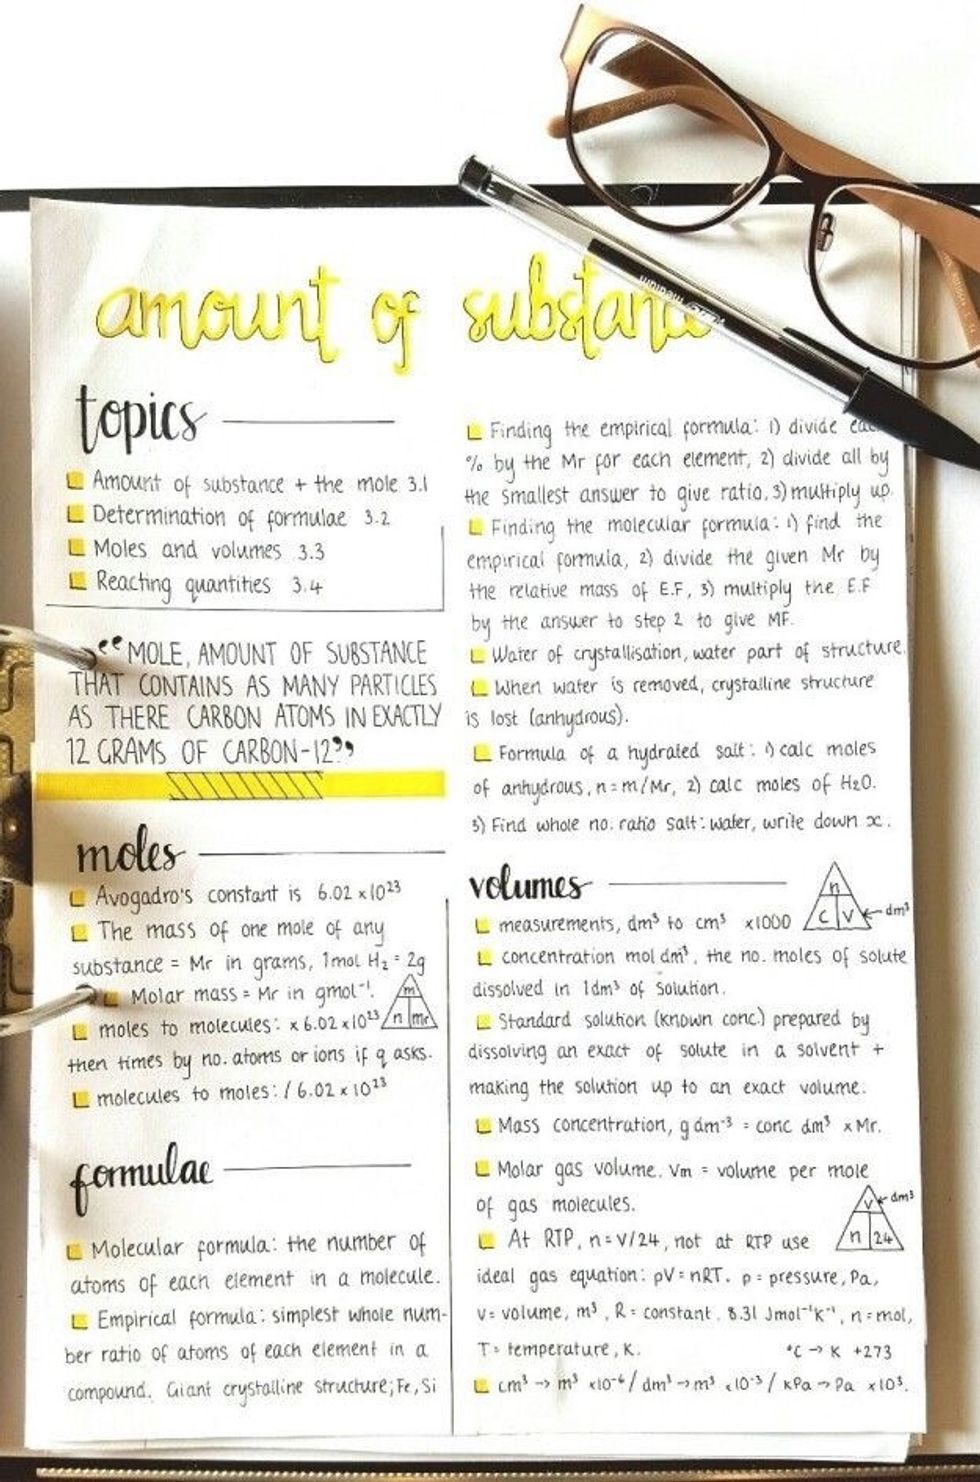 amount of substance
topics
Amount of substance + the mole 3.1
Determination of formulae 3.2
Moles and volumes 3.3
Reacting quantities 3.4
“MOLE, AMOUNT OF SUBSTANCE
THAT CONTAINS AS MANY PARTICLES
AS THERE CARBON ATOMS IN EXACTLY
12 GRAMS OF CARBON-12”
moles
Avogadro's constant is 6.02 x 10²³
The mass of one mole of any
substance = Mr in grams, 1mol H₂ = 2g
Molar mass = Mr in gmol⁻¹.
m
n mr
moles to molecules: x 6.02 x 10²³
then times by no. atoms or ions if q asks.
molecules to moles: / 6.02 x 10²³
formulae
Molecular formula: the number of
atoms of each element in a molecule.
Empirical formula: simplest whole num-
ber ratio of atoms of each element in a
compound. Giant crystalline structure; Fe, Si
Finding the empirical formula: 1) divide
% by the Mr for each element, 2) divide all by
the smallest answer to give ratio, 3) multiply up.
Finding the molecular formula: 1) find the
empirical formula, 2) divide the given Mr by
the relative mass of E.F, 3) multiply the E.F
by the answer to step 2 to give MF.
Water of crystallisation, water part of structure.
When water is removed, crystalline structure
is lost (anhydrous).
Formula of a hydrated salt: 1) calc moles
of anhydrous, n = m/Mr, 2) calc moles of H₂O.
3) Find whole no. ratio salt: water, write down x.
volumes
n
C V ← dm³
measurements, dm³ to cm³ x1000
concentration mol dm³, the no. moles of solute
dissolved in 1dm³ of solution.
Standard solution (known conc.) prepared by
dissolving an exact of solute in a solvent +
making the solution up to an exact volume.
Mass concentration, g dm⁻³ = conc dm³ x Mr.
Molar gas volume, Vm = volume per mole
of gas molecules.
V ← dm³
n 24
At RTP, n = V/24, not at RTP use
ideal gas equation: pV = nRT. p = pressure, Pa,
V = volume, m³, R = constant, 8.31 Jmol⁻¹K⁻¹, n = mol,
T = temperature, K. °C → K +273
cm³ → m³ x10⁻⁶ / dm³ → m³ x10⁻³ / kPa → Pa x10³.